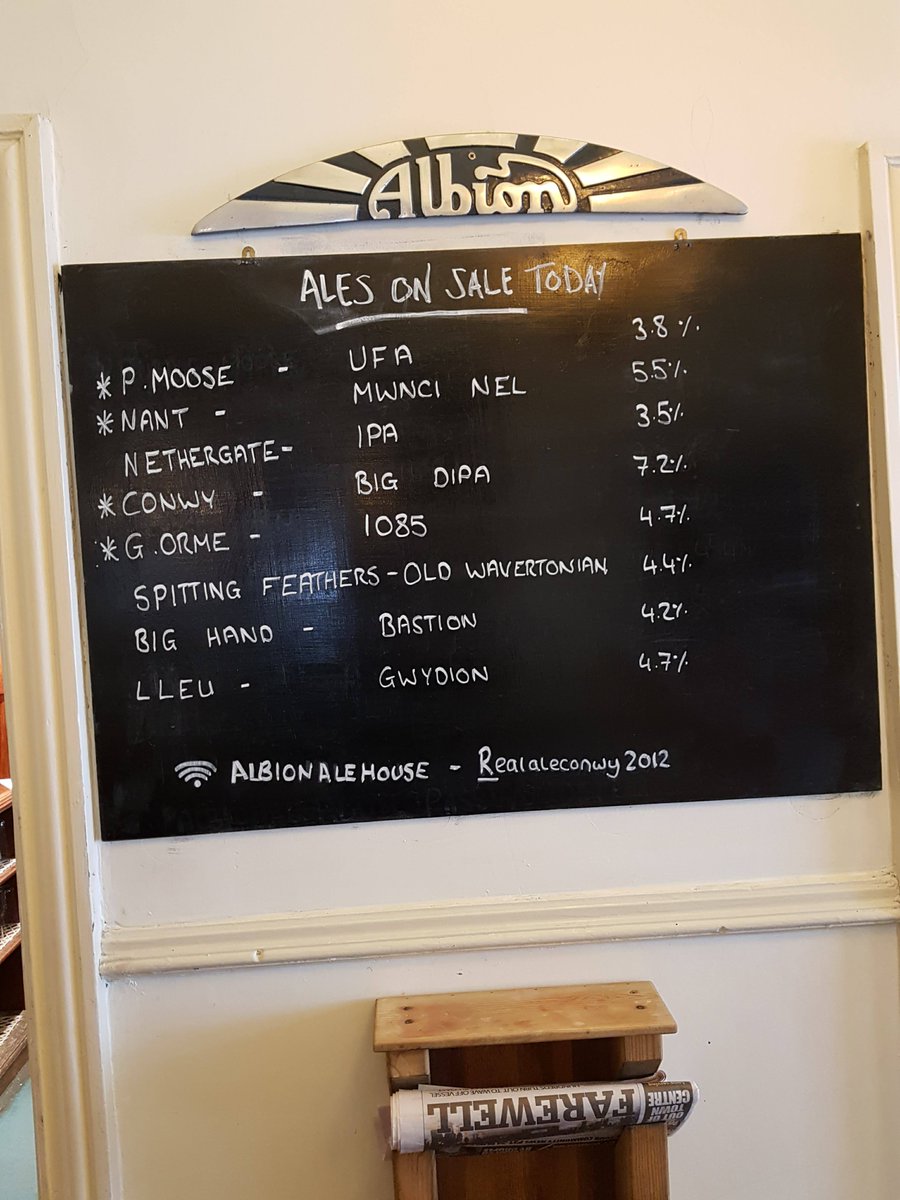 Albion
ALES ON SALE TODAY
* P.MOOSE - UFA 3.8%
* NANT - MWNCI NEL 5.5%
NETHERGATE- IPA 3.5%
* CONWY - BIG DIPA 7.2%
* G.ORME - 1085 4.7%
SPITTING FEATHERS - OLD WAVERTONIAN 4.4%
BIG HAND - BASTION 4.2%
LLEU - GWYDION 4.7%
ALBIONALEHOUSE - Realaleconwy2012
HUNDREDS TURN OUT TO WAVE OFF VESSEL
FAREWELL
OUT OF
TOWN
CENTRE